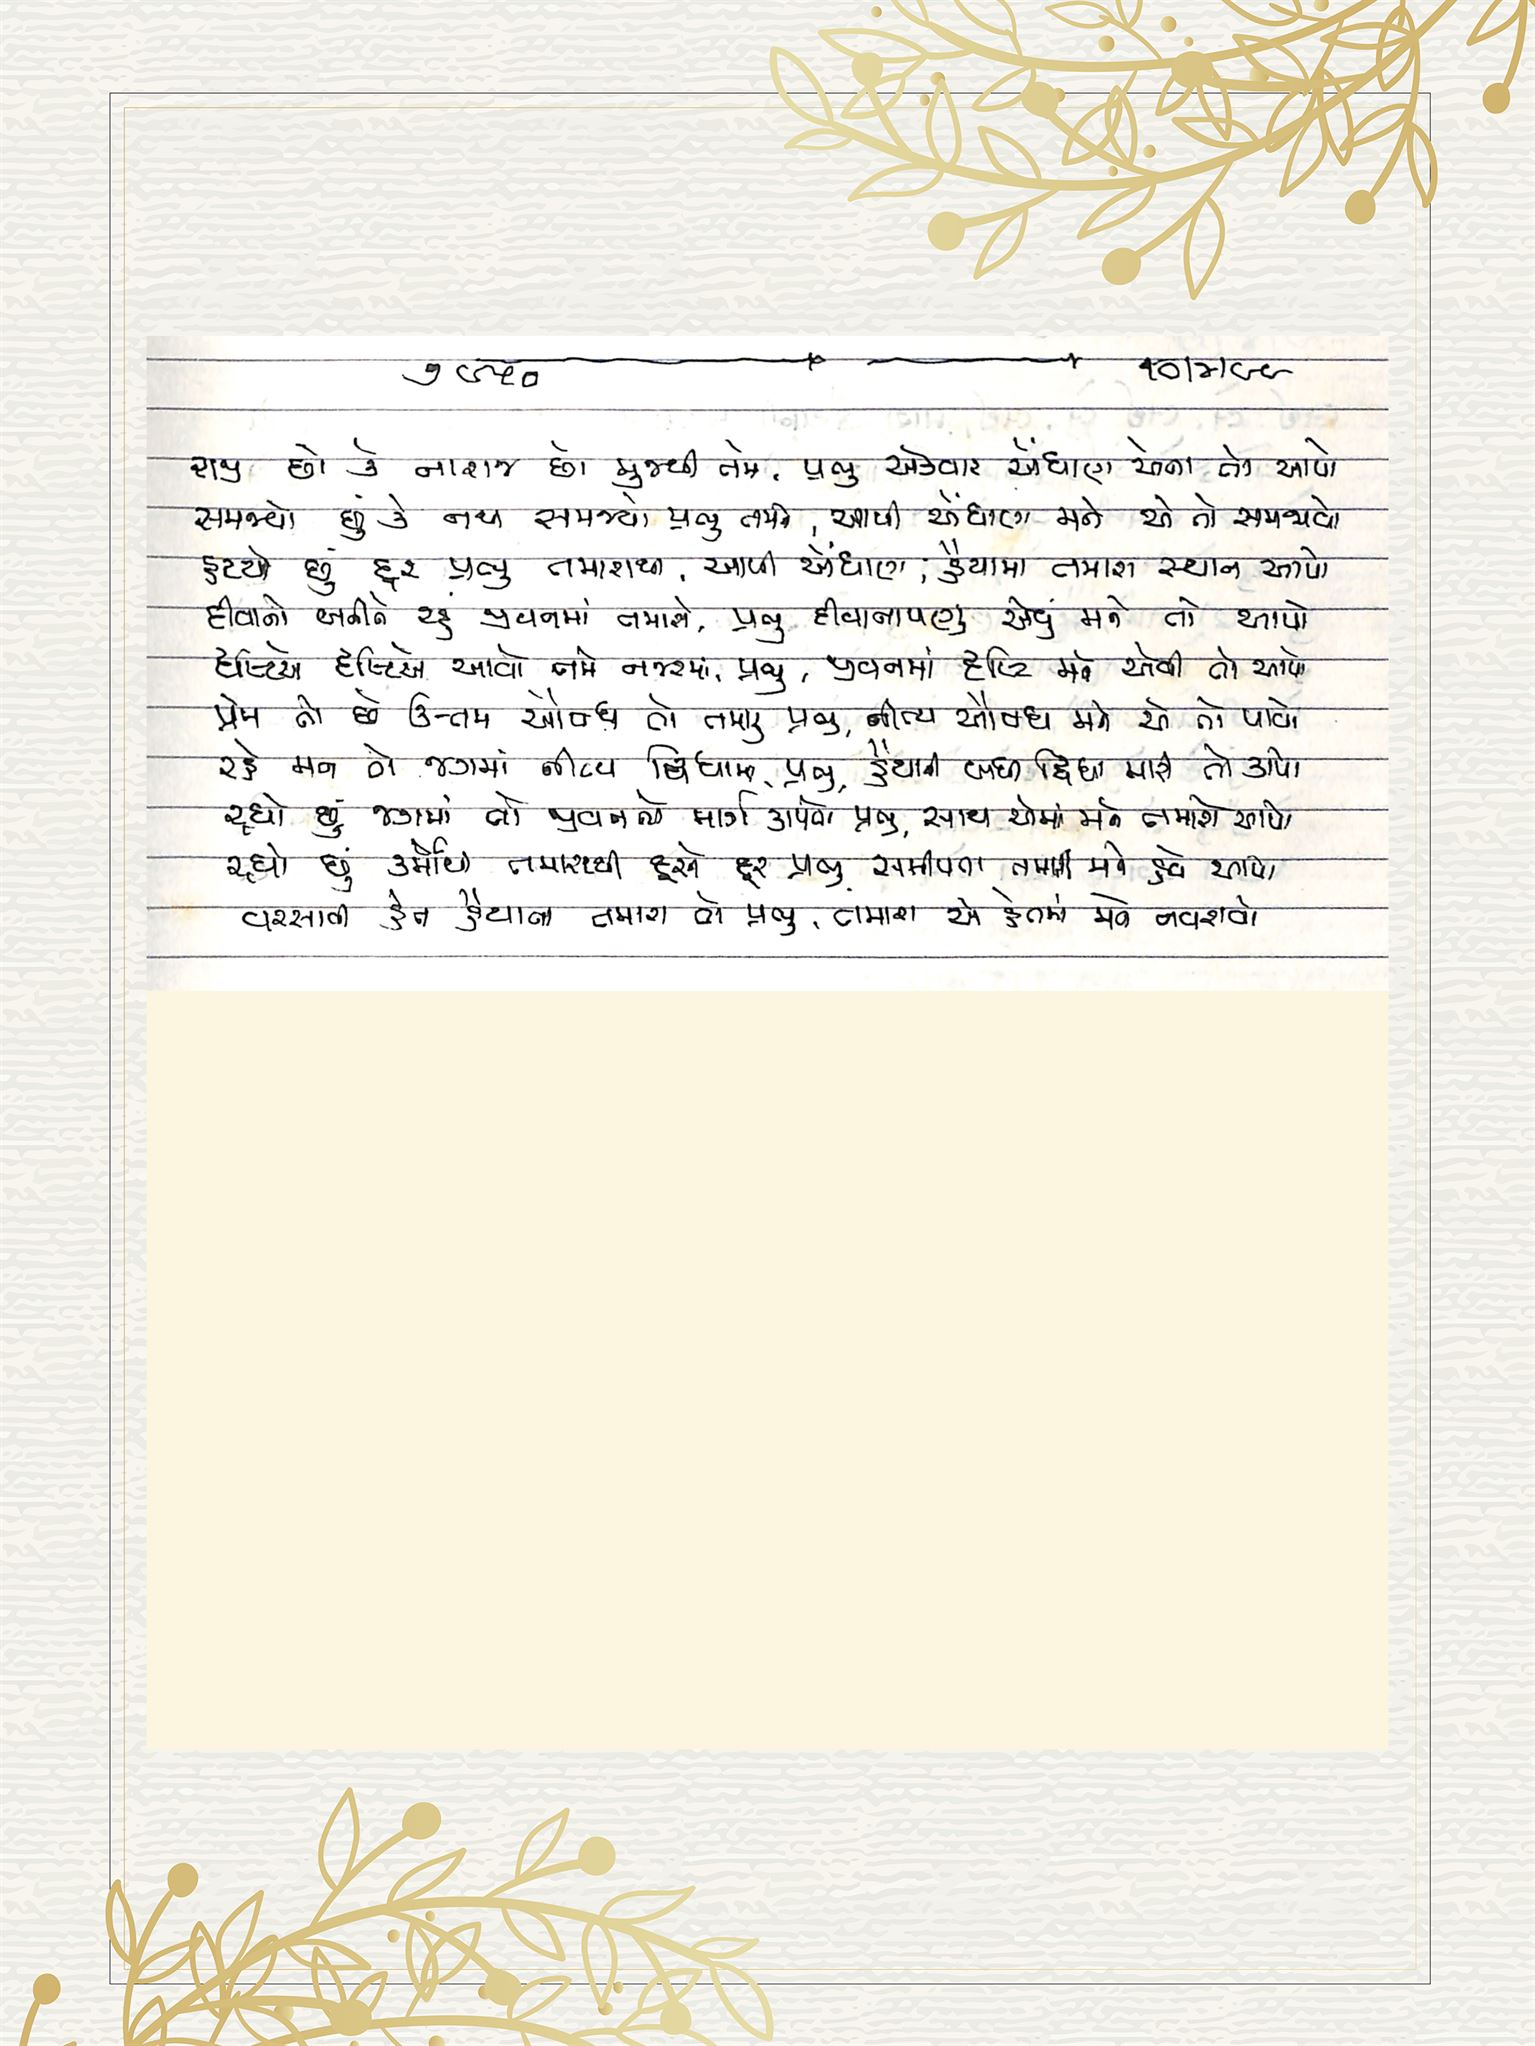 ૭૯૫૦ ૧૦/૫/૯૯
રાજી છો કે નારાજ છો મુજથી તમે, પ્રભુ એકવાર એંધાણ એના તો આપો
સમજ્યો છું કે નથી સમજ્યો પ્રભુ તમને, આપી એંધાણ મને એ તો સમજાવો
હટયો છું દૂર પ્રભુ તમારાથી, આપી એંધાણ, હૈયામાં તમારા સ્થાન આપો
દીવાનો બનીને રહું જીવનમાં તમારો, પ્રભુ દીવાનાપણું એવું મને તો આપો
દૃષ્ટિએ દૃષ્ટિએ આવો તમે નજરમાં, પ્રભુ, જીવનમાં દૃષ્ટિ મને એવી તો આપો
પ્રેમ તો છે ઉત્તમ ઔષધ તો તમારું પ્રભુ, નીત્ય ઔષધ મને એ તો પાવો
રહે મન તો જગમાં નીત્ય દ્વિધામાં, પ્રભુ, હૈયાની બધી દ્વિધા મારી તો કાપો
રૂંધ્યો છું જગમાં તો જીવનનો માર્ગ કાપવો પ્રભુ, સાથ એમાં મને તમારો આપો
રહ્યો છું કર્મોથી તમારાથી દૂરને દૂર પ્રભુ સમીપતા તમારી મને હવે આપો
વરસાવી હેત હૈયાના તમારા તો પ્રભુ, તમારા એ હેતમાં મને નવરાવો